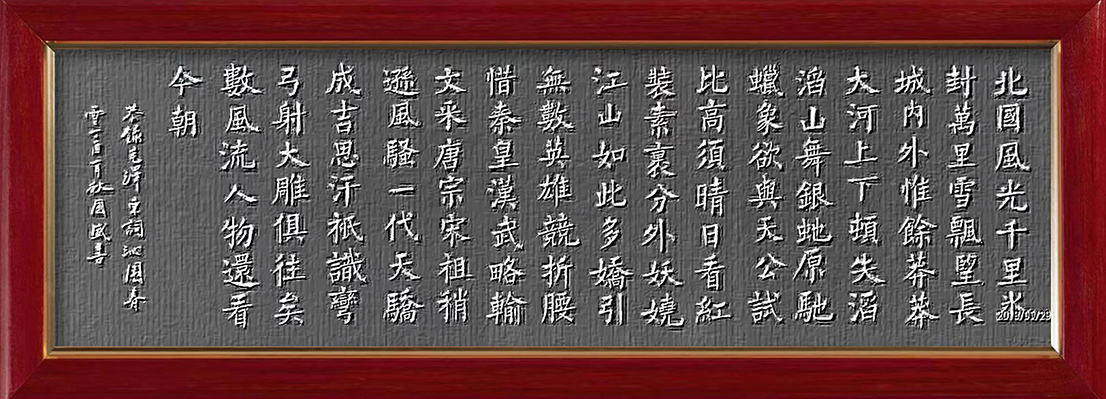 北國風光千里氷
封萬里雪飄望長
城内外惟餘莽莽
大河上下頓失滔
滔山舞銀虵原馳
蠟象欲與天公試
比高須晴日看紅
裝素裹分外妖嬈
江山如此多嬌引
無數英雄競折腰
惜秦皇漢武略輸
文采唐宗宋祖稍
遜風騷一代天驕
成吉思汗祇識彎
弓射大雕俱往矣
數風流人物還看
今朝
恭錄毛澤東詞沁園春
雪